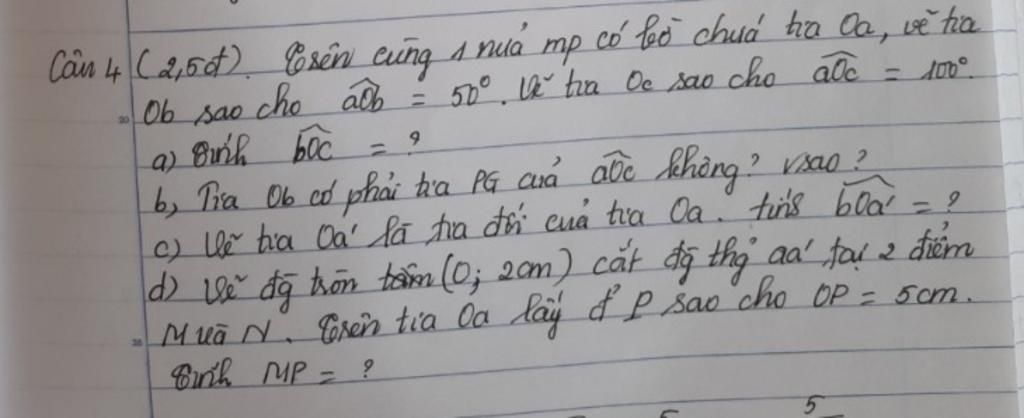 Câu 4 (2,5đ). Trên cùng 1 nửa mp có bờ chứa tia Oa, vẽ tia
Ob sao cho aOb = 50°. Vẽ tia Oc sao cho aOc = 100°.
a) Tính bOc = ?
b, Tia Ob có phải tia PG của aOc không? Vsao?
c) Vẽ tia Oa' là tia đối của tia Oa. tính bOa' = ?
d) Vẽ đg tròn tâm (O; 2cm) cắt đg thg aa' tại 2 điểm
M và N. Trên tia Oa lấy đ' P sao cho OP = 5cm.
Tính MP = ?
5